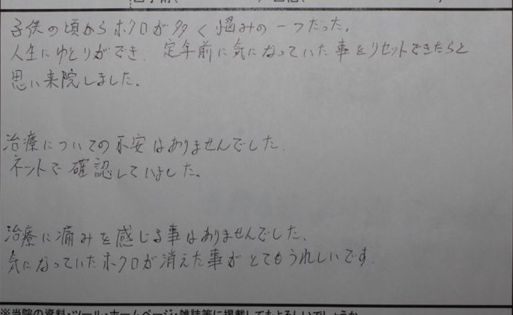 子供の頃からホクロが多く悩みの一つだった。
人生にゆとりができ、定年前に気になっていた事をリセットできたらと
思い来院しました。
治療についての不安はありませんでした。
ネットで確認していました。
治療に痛みを感じる事はありませんでした。
気になっていたホクロが消えた事がとてもうれしいです。
※当院の資料・ツール・ホームページ・雑誌等に掲載してもよろしいでしょうか